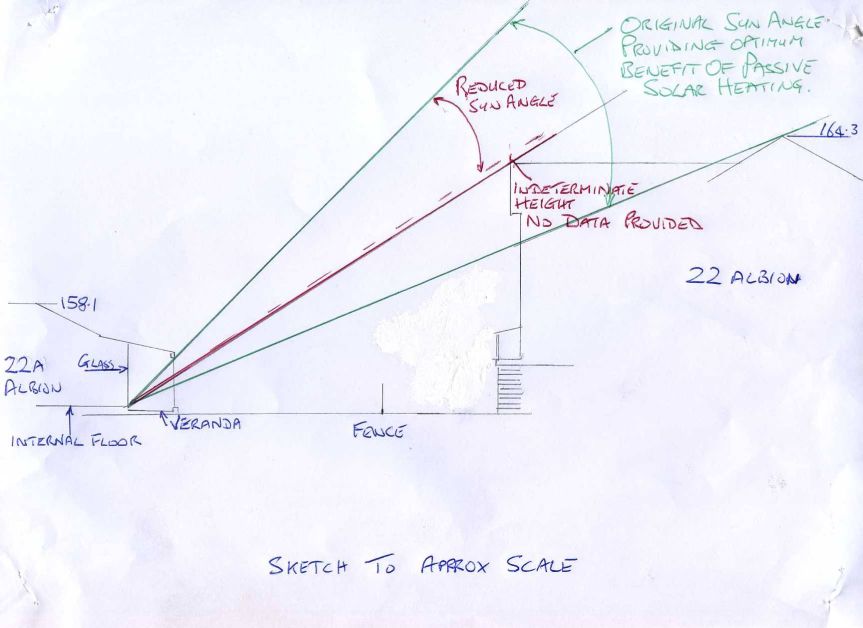 ORIGINAL SUN ANGLE
PROVIDING OPTIMUM
BENEFIT OF PASSIVE
SOLAR HEATING.
REDUCED
SUN ANGLE
164.3
INDETERMINATE
HEIGHT
NO DATA PROVIDED
22 ALBION
158.1
22A
ALBION
GLASS
VERANDA
INTERNAL FLOOR
FENCE
SKETCH TO APPROX SCALE